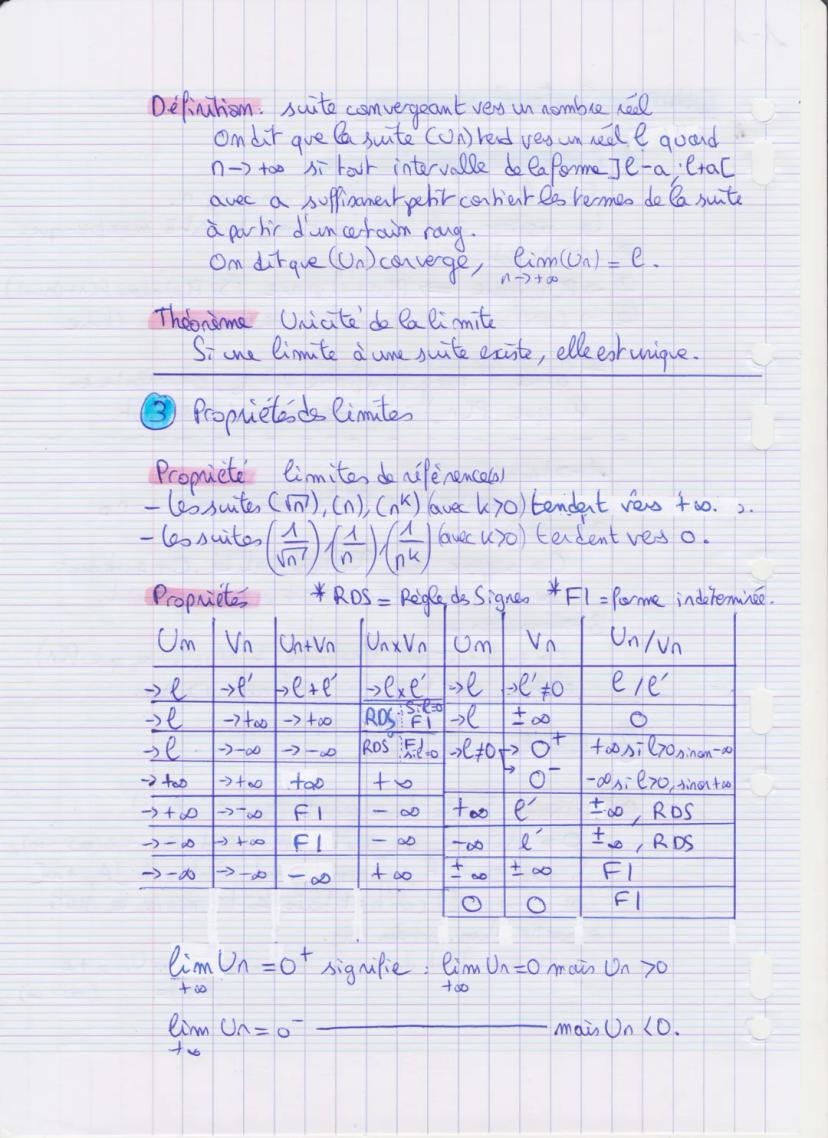 Définition : suite convergeant vers un nombre réel
On dit que la suite (Un) tend vers un réel l quand
n -> +∞ si tout intervalle de la forme ]l-a ; l+a[
avec a suffisament petit contient les termes de la suite
à partir d'un certain rang.
On dit que (Un) converge, lim(Un) = l.
n->+∞
Théorème Unicité de la limite
Si une limite à une suite existe, elle est unique.
3 Propriétés des limites
Propriété limites de référence(s)
- les suites (√n), (n), (n^k) (avec k>0) tendent vers +∞.
- les suites (1/√n), (1/n), (1/n^k) (avec k>0) tendent vers 0.
Propriétés * RDS = Règle des Signes * FI = forme indéterminée.
Un Vn Un+Vn Un×Vn Un Vn Un/Vn
->l ->l' ->l+l' ->l×l' ->l ->l'≠0 l/l'
->l ->+∞ ->+∞ RDS si l=0 FI ->l ±∞ 0
->l ->-∞ ->-∞ RDS FI si l=0 ->l≠0 -> 0⁺ +∞ si l>0 sinon -∞
->+∞ ->+∞ +∞ +∞ -> 0⁻ -∞ si l>0, sinon +∞
->+∞ ->-∞ FI -∞ +∞ l' ±∞, RDS
->-∞ ->+∞ FI -∞ -∞ l' ±∞, RDS
->-∞ ->-∞ -∞ +∞ ±∞ ±∞ FI
0 0 FI
lim Un = 0⁺ signifie : lim Un = 0 mais Un > 0
+∞ +∞
lim Un = 0⁻ ——— mais Un < 0.
+∞